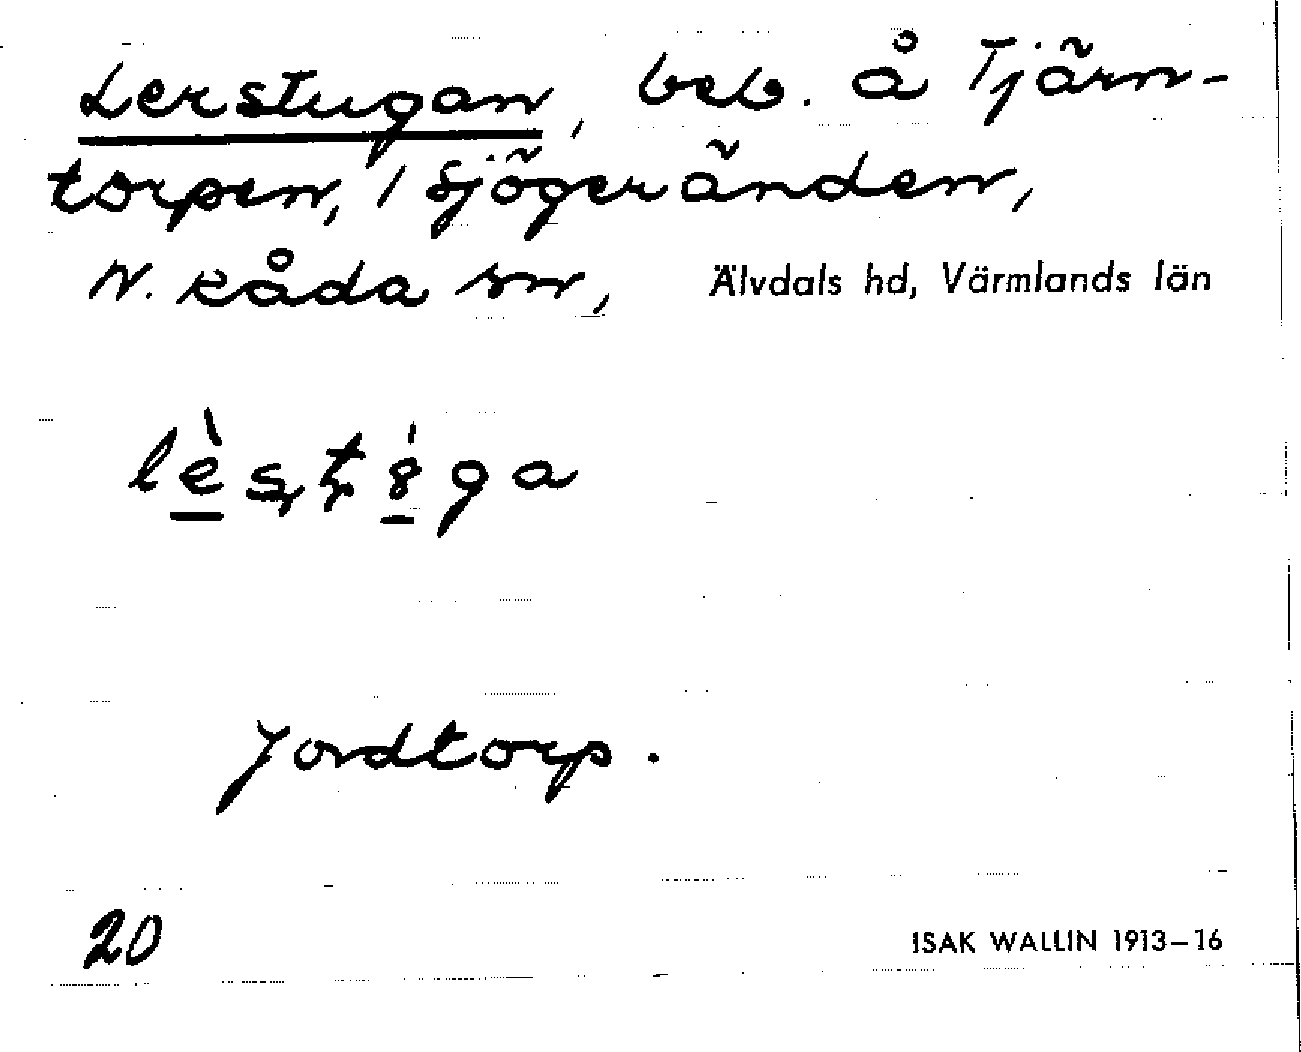 Lerstugan, beb. å Tjärn-
torpen, 1 Sjögeränden,
N. Råda sn, Älvdals hd, Värmlands län
Jordtorp.
20 ISAK WALLIN 1913–16